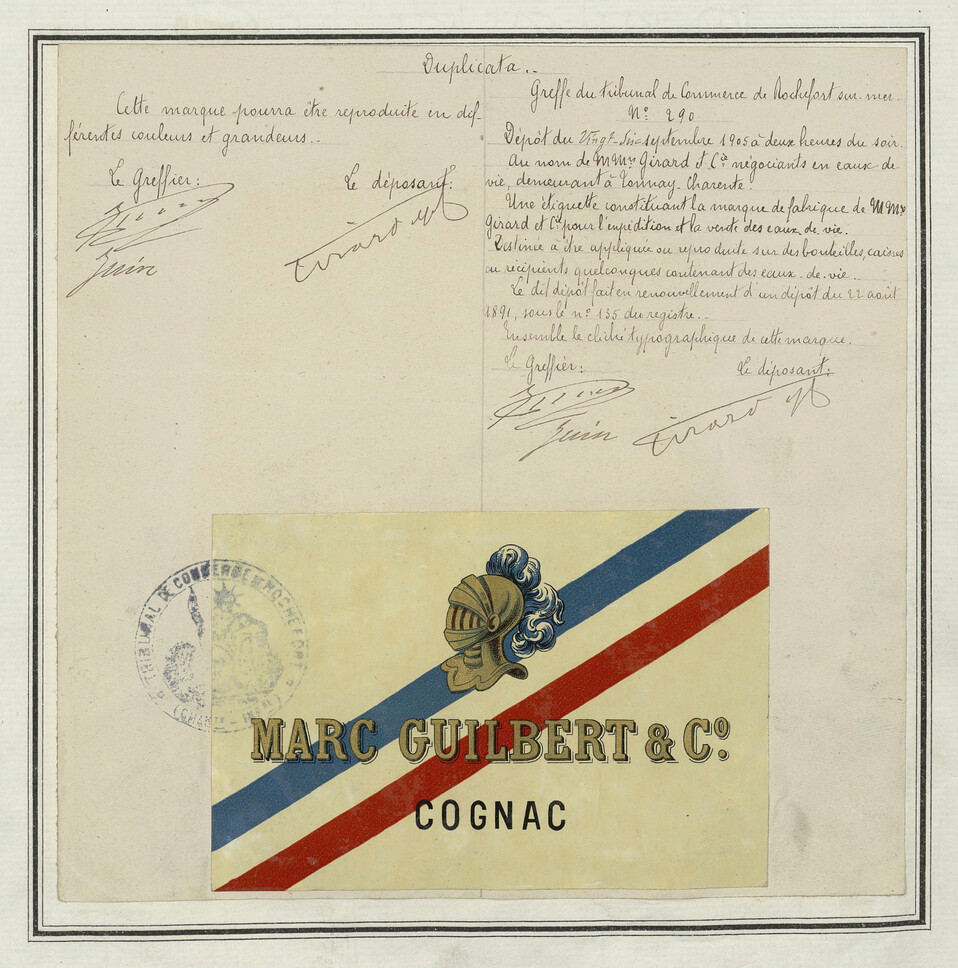 Duplicata..
Cette marque pourra être reproduite en dif-
férentes couleurs et grandeurs..
Le Greffier:
Le déposant:
Juin
Girard
Greffe du tribunal de Commerce de Rochefort-sur-mer.
N° 290
Dépôt du Vingt-Six septembre 1905 à deux heures du soir.
Au nom de MMrs Girard et Cie négociants en eaux-de-
vie, demeurant à Tonnay-Charente.
Une étiquette constituant la marque de fabrique de MMrs
Girard et Cie pour l'expédition et la vente des eaux-de-vie.
Destinée à être appliquée ou reproduite sur des bouteilles, caisses
ou récipients quelconques contenant des eaux-de-vie..
Le dit dépôt fait en renouvellement d'un dépôt du 22 août
1891, sous le n° 155 du registre..
Ensemble le cliché typographique de cette marque.
Le Greffier:
Le déposant:
Juin
Girard
TRIBUNAL DE COMMERCE DE ROCHEFORT
MARC GUILBERT & Co.
COGNAC